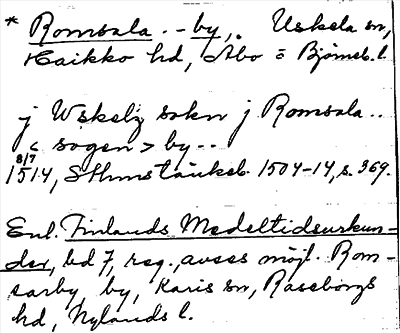 * Romsala - - by, Uskela sn,
Haikko hd, Åbo o Björneb. l.
j Wskelz sokn j Romsala..
< sogen > by - -
8/7
1514, Sthmstänkeb. 1504-14, s. 369.
Enl. Finlands Medeltidsurkun-
der, bd 7, reg., avses möjl. Rom-
sarby, by, Karis sn, Raseborgs
hd, Nylands l.